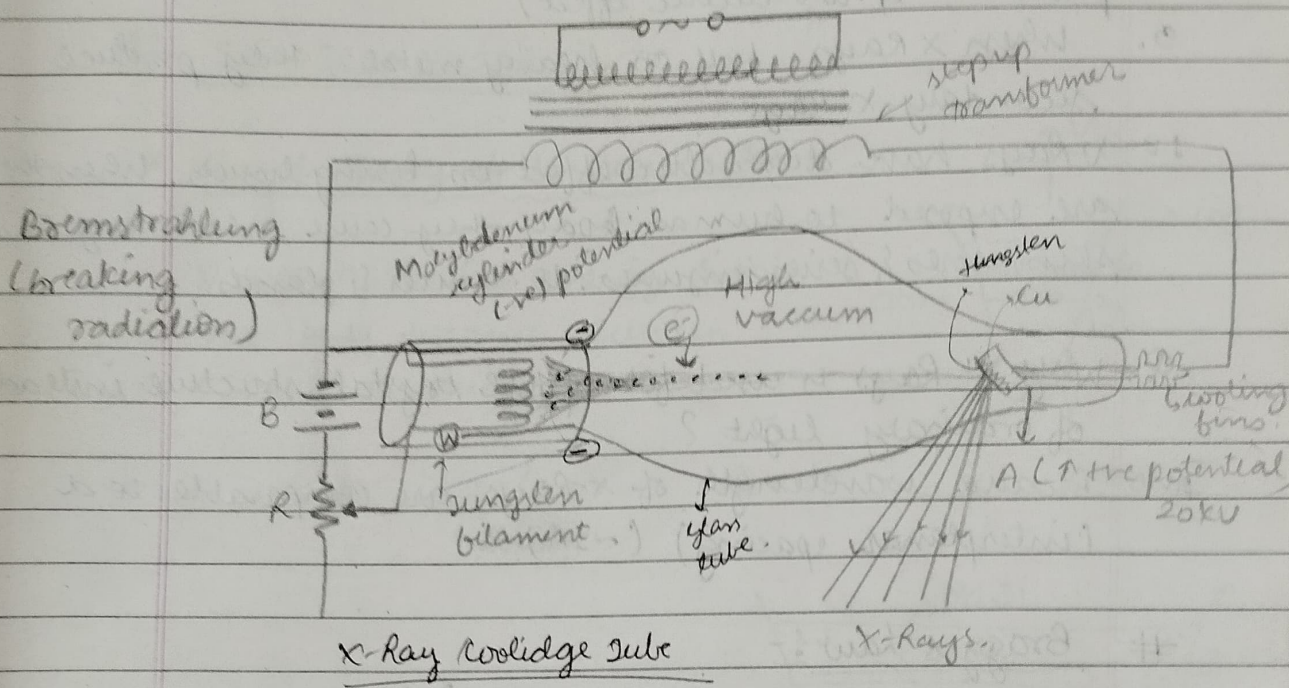 stepup
transformer
Bremstrahlung
(breaking
radiation)
Molybdenum
cylinder
(-ve) potential
High
vaccum
tungsten
Cu
e
B
W
R
Tungsten
filament.
glass
tube.
cooling
fins.
A (↑ +ve potential
20kV
X-Rays.
X-Ray Coolidge Tube